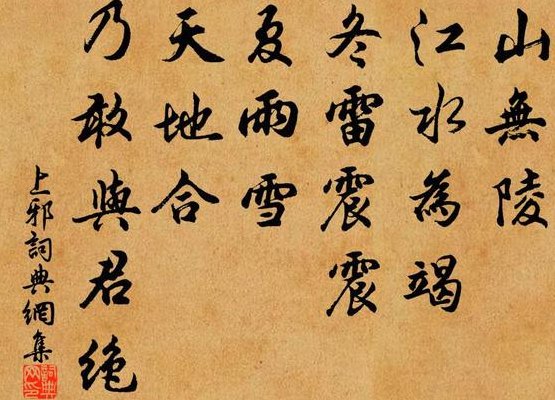 山無陵
江水為竭
冬雷震震
夏雨雪
天地合
乃敢與君絕
上邪詞典網集